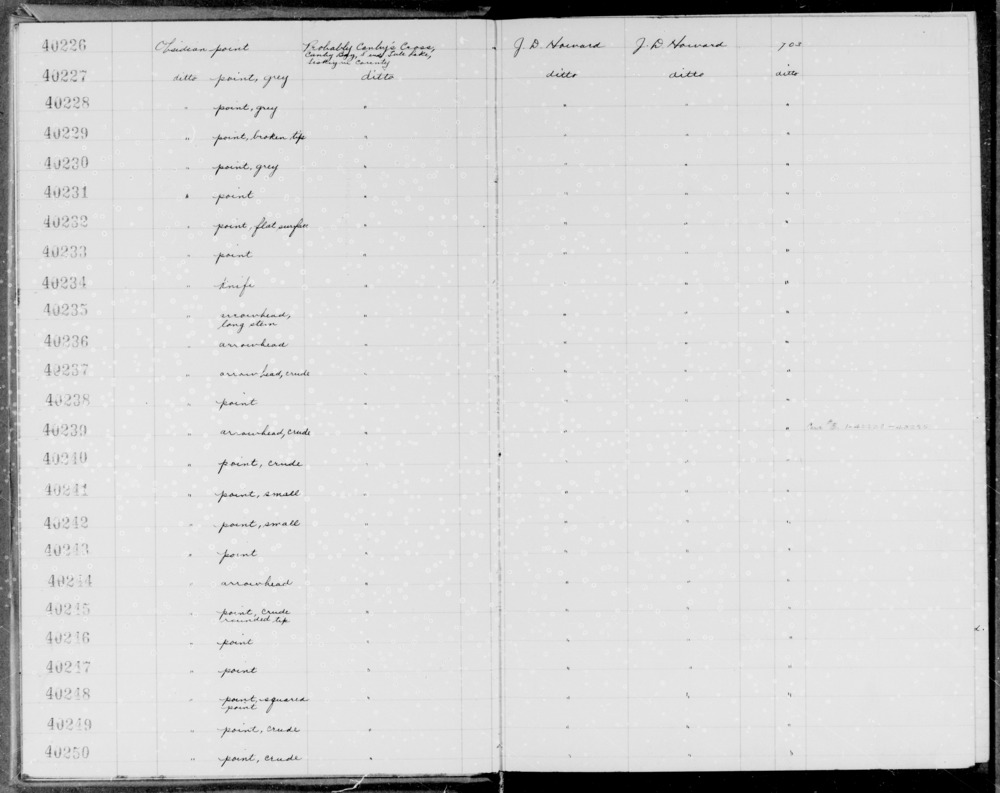 40226 Obsidean point Probably Canby's Cross, J. D. Howard J. D. Howard 703
Canby Bay, Tule Lake,
County
40227 ditto point, grey ditto ditto ditto ditto
40228 " point, grey " " " "
40229 " point, broken tip " " " "
40230 " point, grey " " " "
40231 " point " " " "
40232 " point, flat surface " " " "
40233 " point " " " "
40234 " knife " " " "
40235 " arrowhead, " " " "
long stem
40236 " arrowhead " " " "
40237 " arrowhead, crude " " " "
40238 " point " " " "
40239 " arrowhead, crude " " "
40240 " point, crude " " " "
40241 " point, small " " " "
40242 " point, small " " " "
40243 " point " " " "
40244 " arrowhead " " " "
40245 " point, crude " " " "
rounded tip
40246 " point " " " "
40247 " point " " " "
40248 " point, squared " " " "
point
40249 " point, crude " " " "
40250 " point, crude " " " "